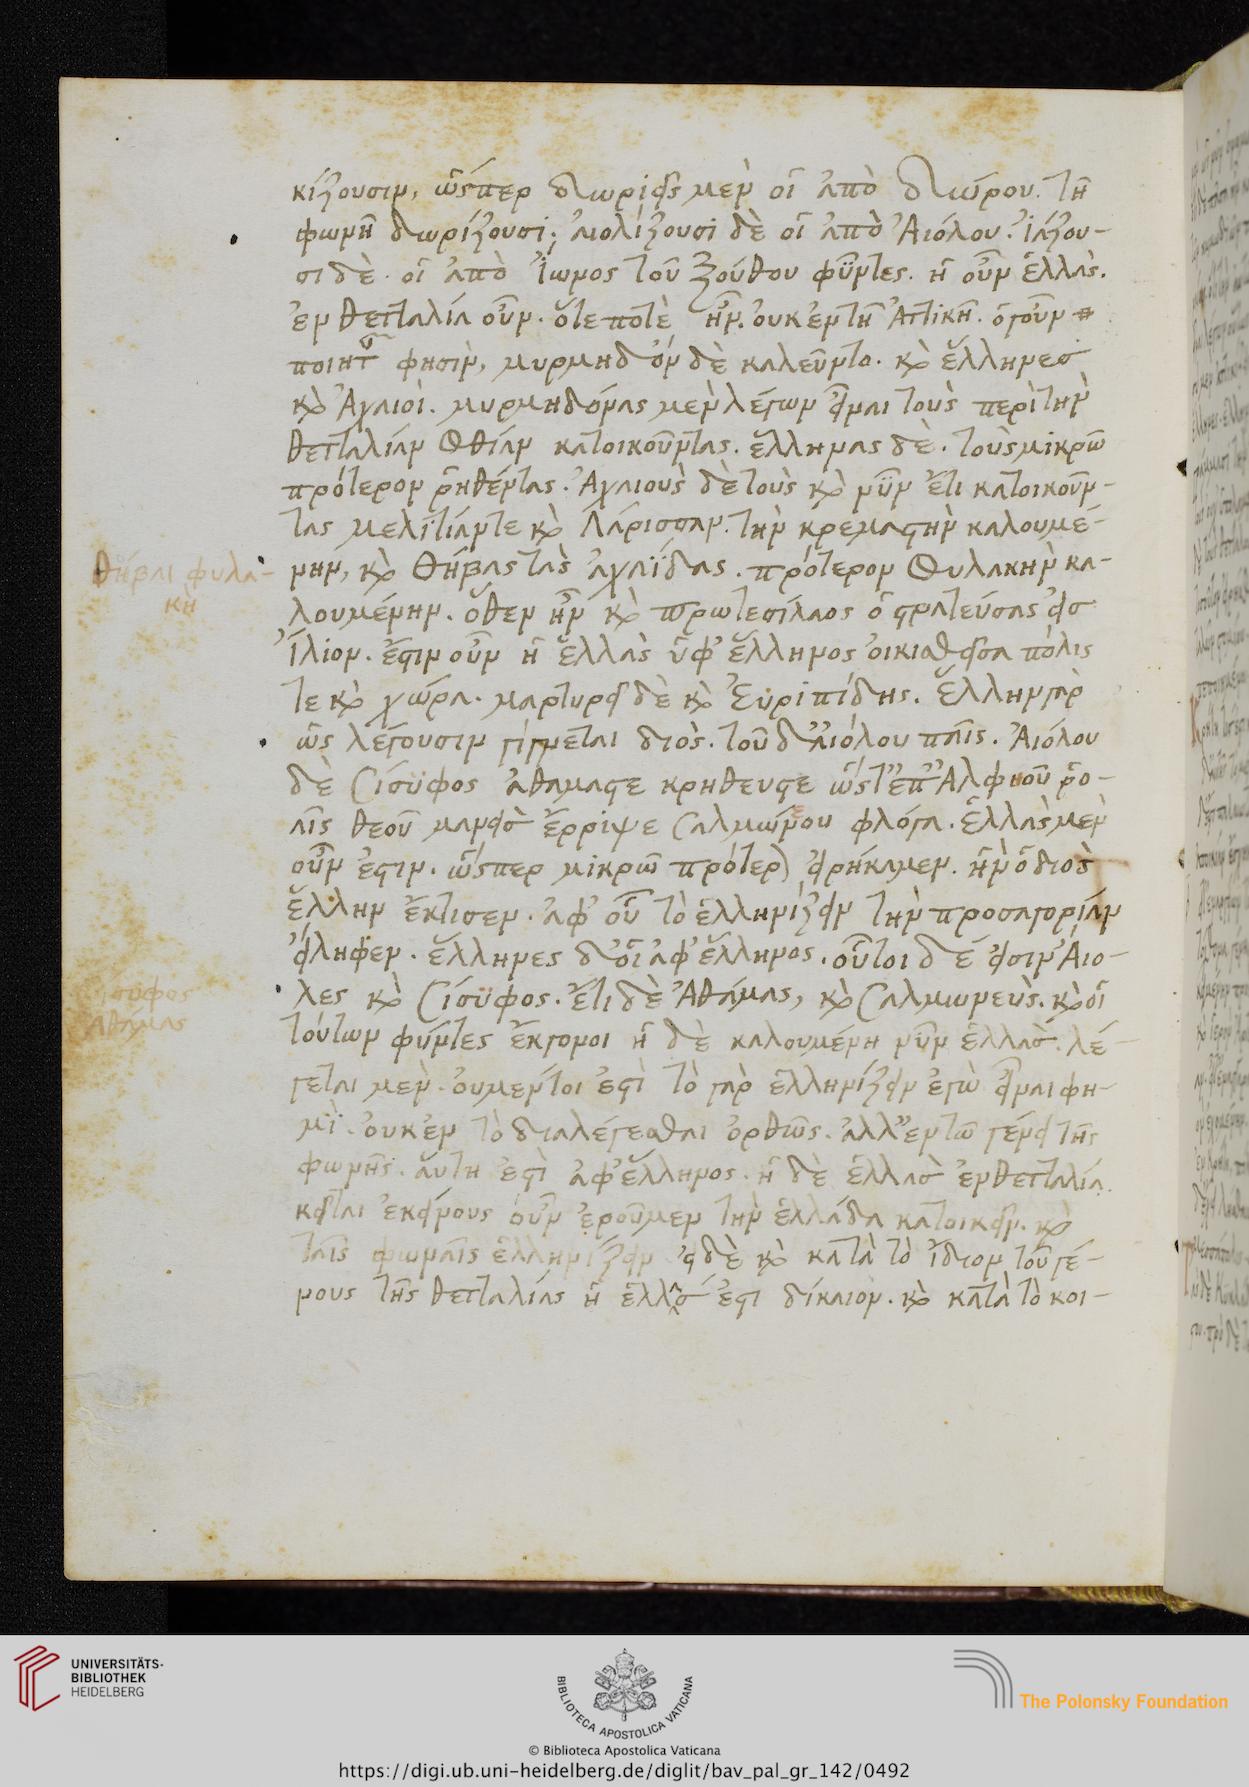 κίζουσιν, ὥσπερ δωριεῖς μὲν οἱ ἀπὸ δώρου. τῆ
φωνῆ δωρίζουσι· αἰολίζουσι δὲ οἱ ἀπὸ Αἰόλου. ἰάζου-
σι δὲ οἱ ἀπὸ Ἴωνος τοῦ Ξούθου φῦντες. ἡ οὖν ἑλλὰς.
ἐν θετταλία οὖν. ὅτε ποτὲ ἦν. ουκ ἐν τῆ Ἀττικῆ. ὁ γοῦν
ποιητ φησὶν, μυρμηδόν δὲ καλεῦντο. καὶ ἕλληνες
καὶ Ἀχαιοὶ. μυρμηδόνας μὲν λέγων εἶναι τοὺς περὶ τὴν
θετταλίαν Φθίαν κατοικοῦντας. ἕλληνας δὲ. τοὺς μικρῶ
πρότερον ῥηθέντας. Ἀχαιοὺς δὲ τοὺς καὶ νῦν ἔτι κατοικοῦν-
τας μελιτίαν τε καὶ Λάρισσαν. τὴν κρεμαστὴν καλουμέ-
θῆβαι φυλα-
κὴ
νην, καὶ Θήβας τὰς ἀχαΐδας. πρότερον Φυλακὴν κα-
λουμένην. ὅθεν ἦν καὶ πρωτεσίλαος ὁ στρατεύσας εἰς
Ἴλιον. ἔστιν οὖν ἡ ἑλλὰς ὑφ' ἕλληνος οἰκισθεῖσα πόλις
τε καὶ χώρα. μαρτυρεῖ δὲ καὶ Εὐριπίδης. Ἕλλην γὰρ
ὡς λέγουσιν γίγνεται διὸς. τοῦ δ' Αἰόλου παῖς. Αἰόλου
δὲ Σίσυφος ἀθαμας τε κρηθευς τε ὥς τ' ἐπ' Αλφειοῦ ῥο-
αῖς θεοῦ μανεὶς ἔρριψε Σαλμώνου φλόγα. Ἑλλὰς μὲν
οὖν ἐστιν. ὥσπερ μικρῶ πρότερον εἰρήκαμεν. ἣν ὁ διὸς
ἕλλην ἔκτισεν. ἀφ' οὗ τὸ ἑλληνίζειν τὴν προσαγορίαν
εἴληφεν. ἕλληνες δ' οἱ ἀφ' ἕλληνος. οὗτοι δέ εἰσιν Αἰο-
σισυφος
Αθάμας
λες καὶ Σίσυφος. ἔτι δὲ Ἀθάμας, καὶ Σαλμωνεὺς. καὶ οἱ
τούτων φύντες ἔκγονοι ἡ δὲ καλουμένη νῦν ἑλλὰς. λέ-
γεται μὲν. ου μέντοι ἐστὶ τὸ γὰρ ἑλληνίζειν ἐγὼ εἶναι φη-
μὶ. ουκ ἐν τὸ διαλέγεσθαι ὀρθῶς. ἀλλ' ἐν τῶ γένει τῆς
φωνῆς. αὕτη ἐστὶ ἀφ' ἕλληνος. ἡ δὲ ἑλλὰς ἐν θετταλία
κεῖται ἐκείνους οὖν ἐροῦμεν τὴν ἑλλάδα κατοικεῖν. καὶ
ταῖς φωναῖς ἑλληνίζειν εἰ δὲ καὶ κατὰ τὸ ἴδιον τοῦ γέ-
νους τῆς θετταλίας ἡ ἑλλὰς ἐστι δίκαιον. καὶ κατὰ τὸ κοι-
UNIVERSITÄTS-
BIBLIOTHEK
HEIDELBERG
BIBLIOTECA APOSTOLICA VATICANA
The Polonsky Foundation
© Biblioteca Apostolica Vaticana
https://digi.ub.uni-heidelberg.de/diglit/bav_pal_gr_142/0492